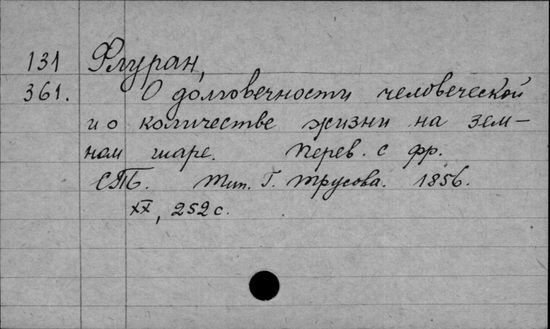 131 Флуран,
361. О долговечности человеческой
и о количестве жизни на зем-
ном шаре. Перев. с фр.
СПБ. Тип. Г. Трусова. 1856.
XX, 252 с.